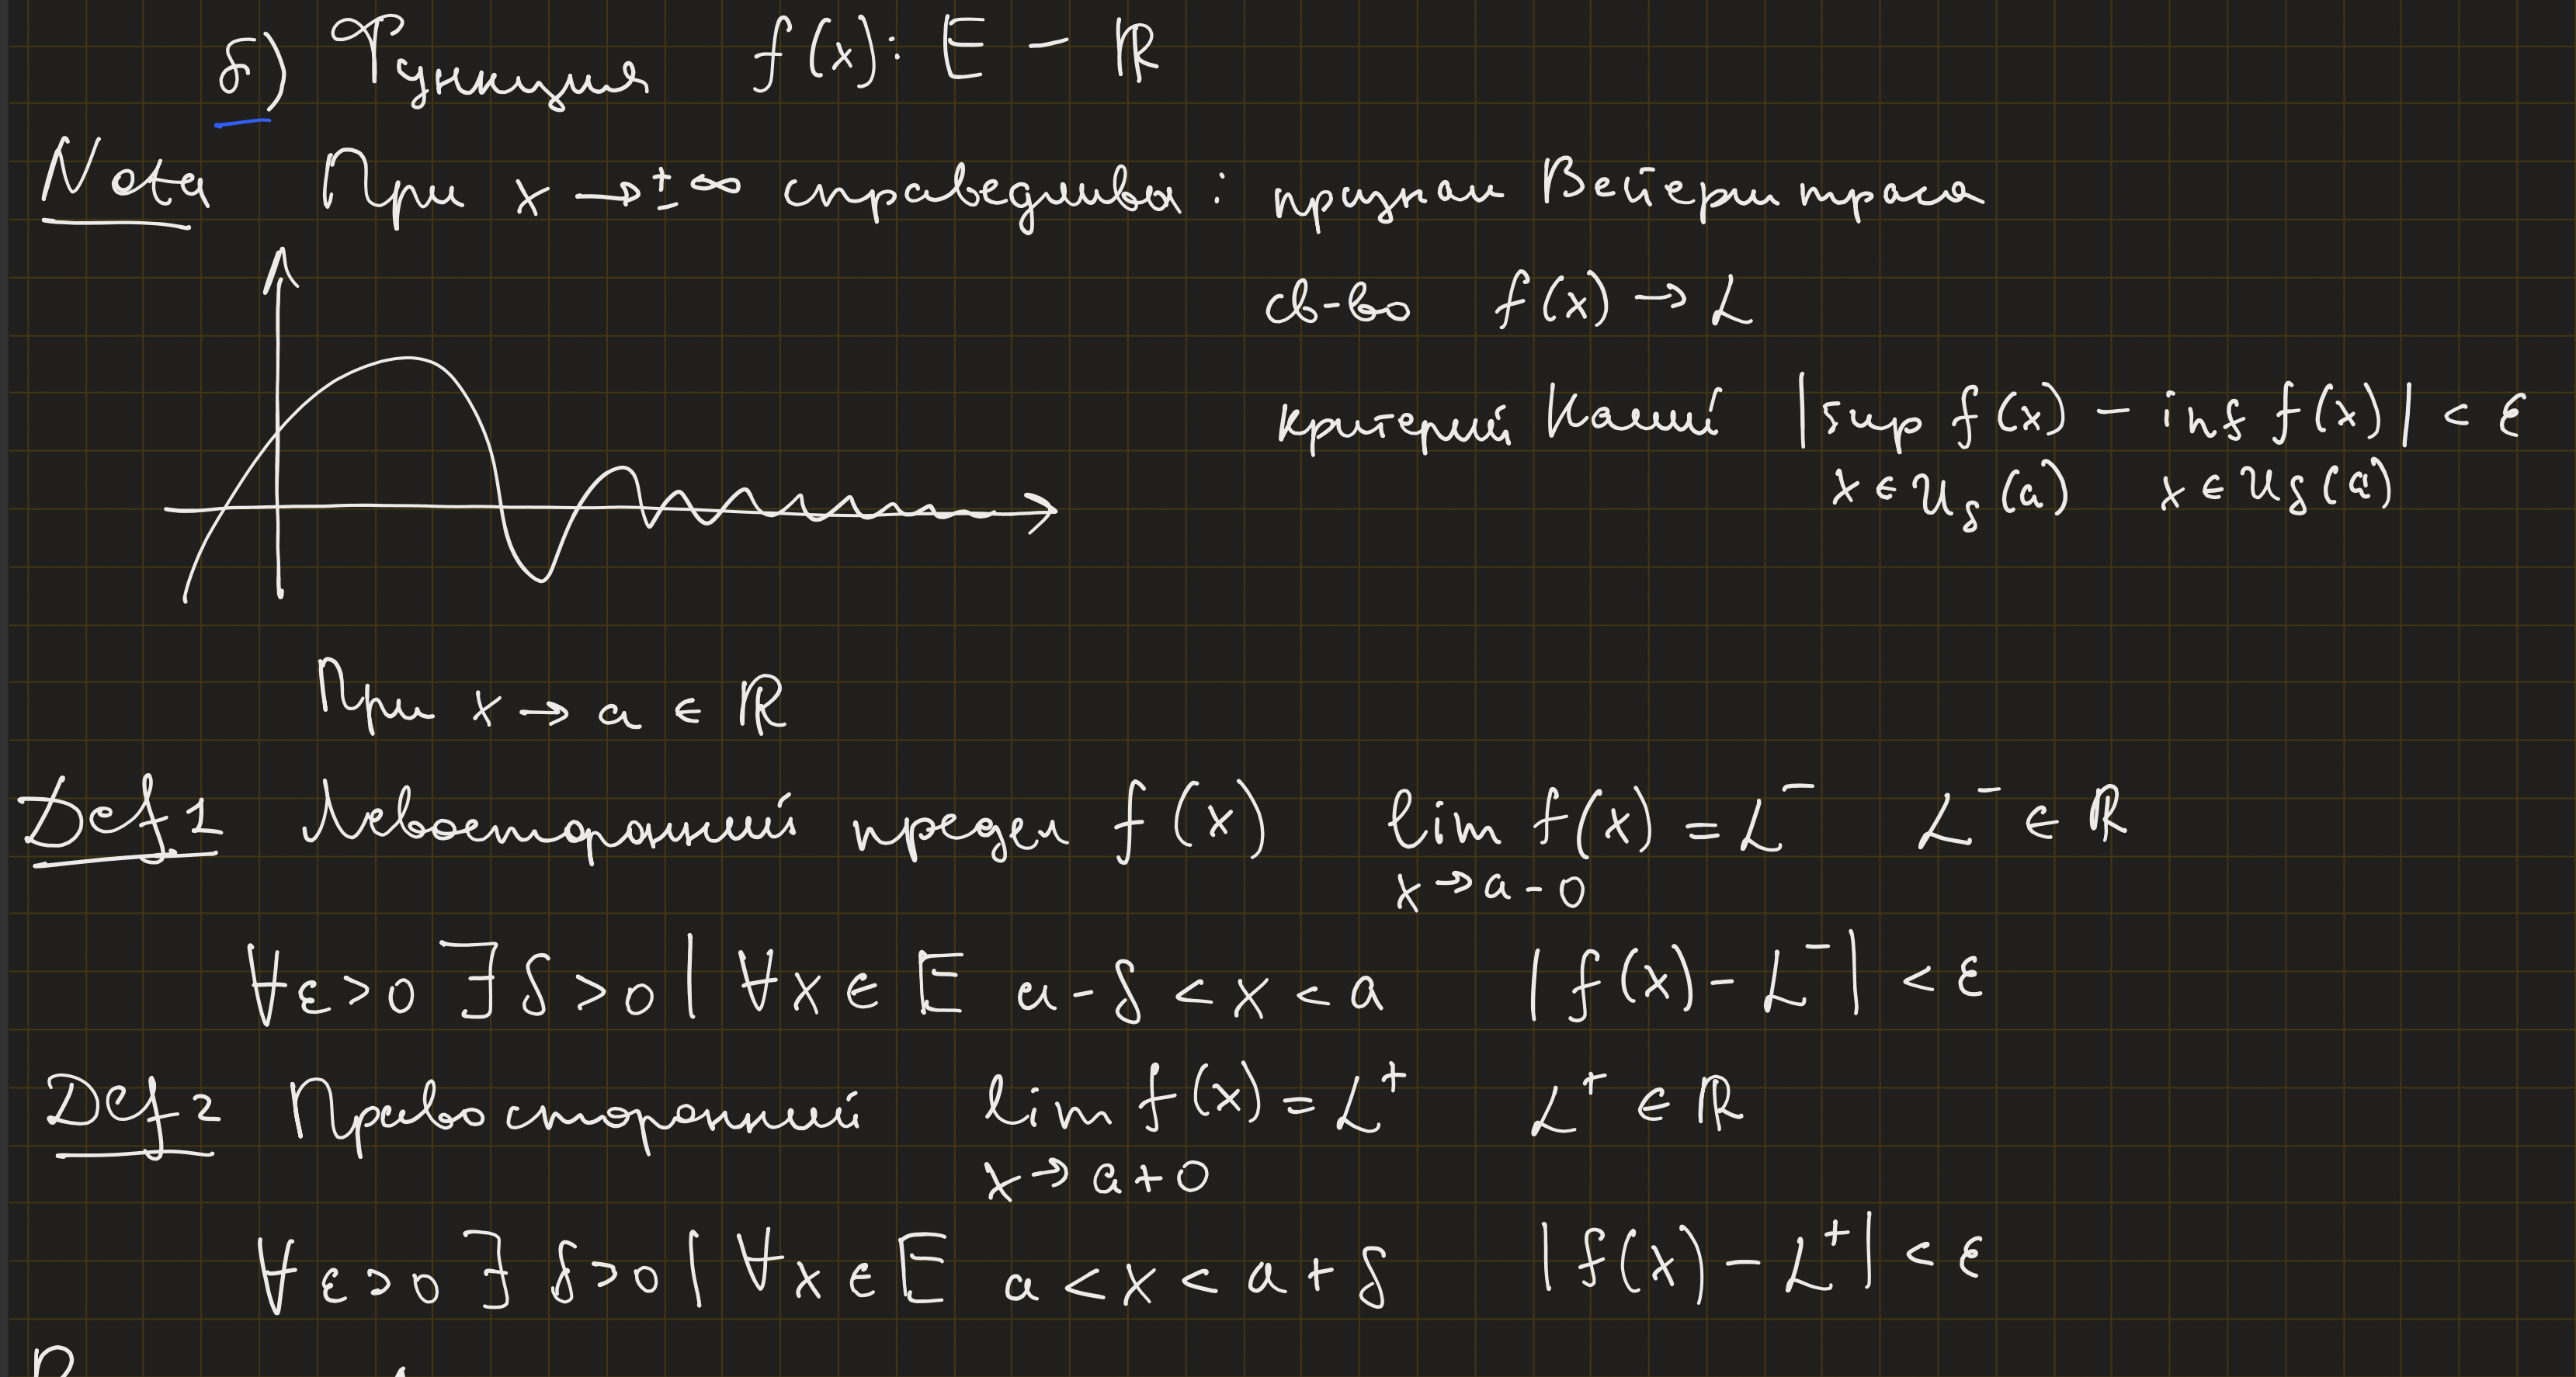 б) Функция f(x): E − ℝ
Nota При x → ±∞ справедливы: признак Вейерштрасса
св-во f(x) → L
критерий Коши |sup f(x) − inf f(x)| < ε
x ∈ U_δ(a) x ∈ U_δ(a)
При x → a ∈ ℝ
Def 1 Левосторонний предел f(x) lim f(x) = L⁻ L⁻ ∈ ℝ
x → a − 0
∀ε > 0 ∃ δ > 0 | ∀x ∈ E a − δ < x < a |f(x) − L⁻| < ε
Def 2 Правосторонний lim f(x) = L⁺ L⁺ ∈ ℝ
x → a + 0
∀ε > 0 ∃ δ > 0 | ∀x ∈ E a < x < a + δ |f(x) − L⁺| < ε